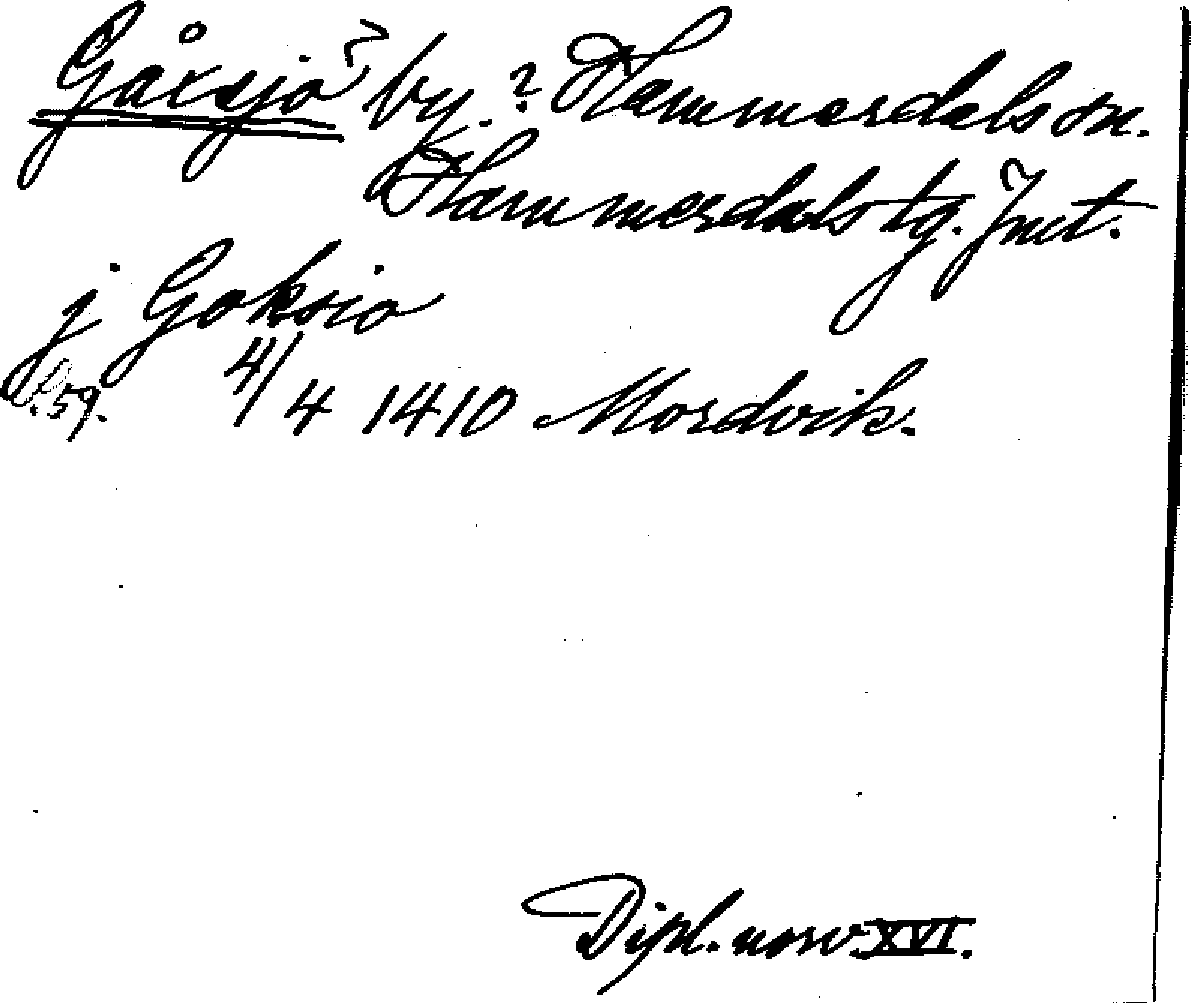 Gåxsjö? by.? Hammerdals sn.
Hammerdals tg. Jmt.
j Goksio
s. 59. 4/4 1410 Mordvik.
Dipl. norv. XVI.